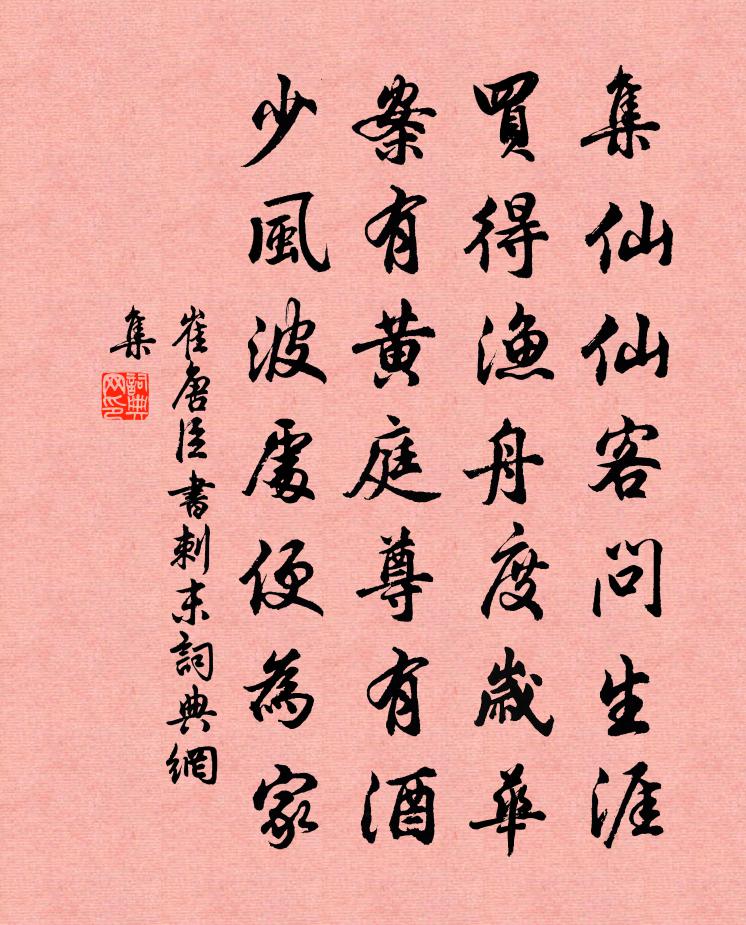 集仙仙客問生涯
買得漁舟度歲華
案有黃庭尊有酒
少風波處便為家
崔唐臣書刺末詞典網
集
詞典網印